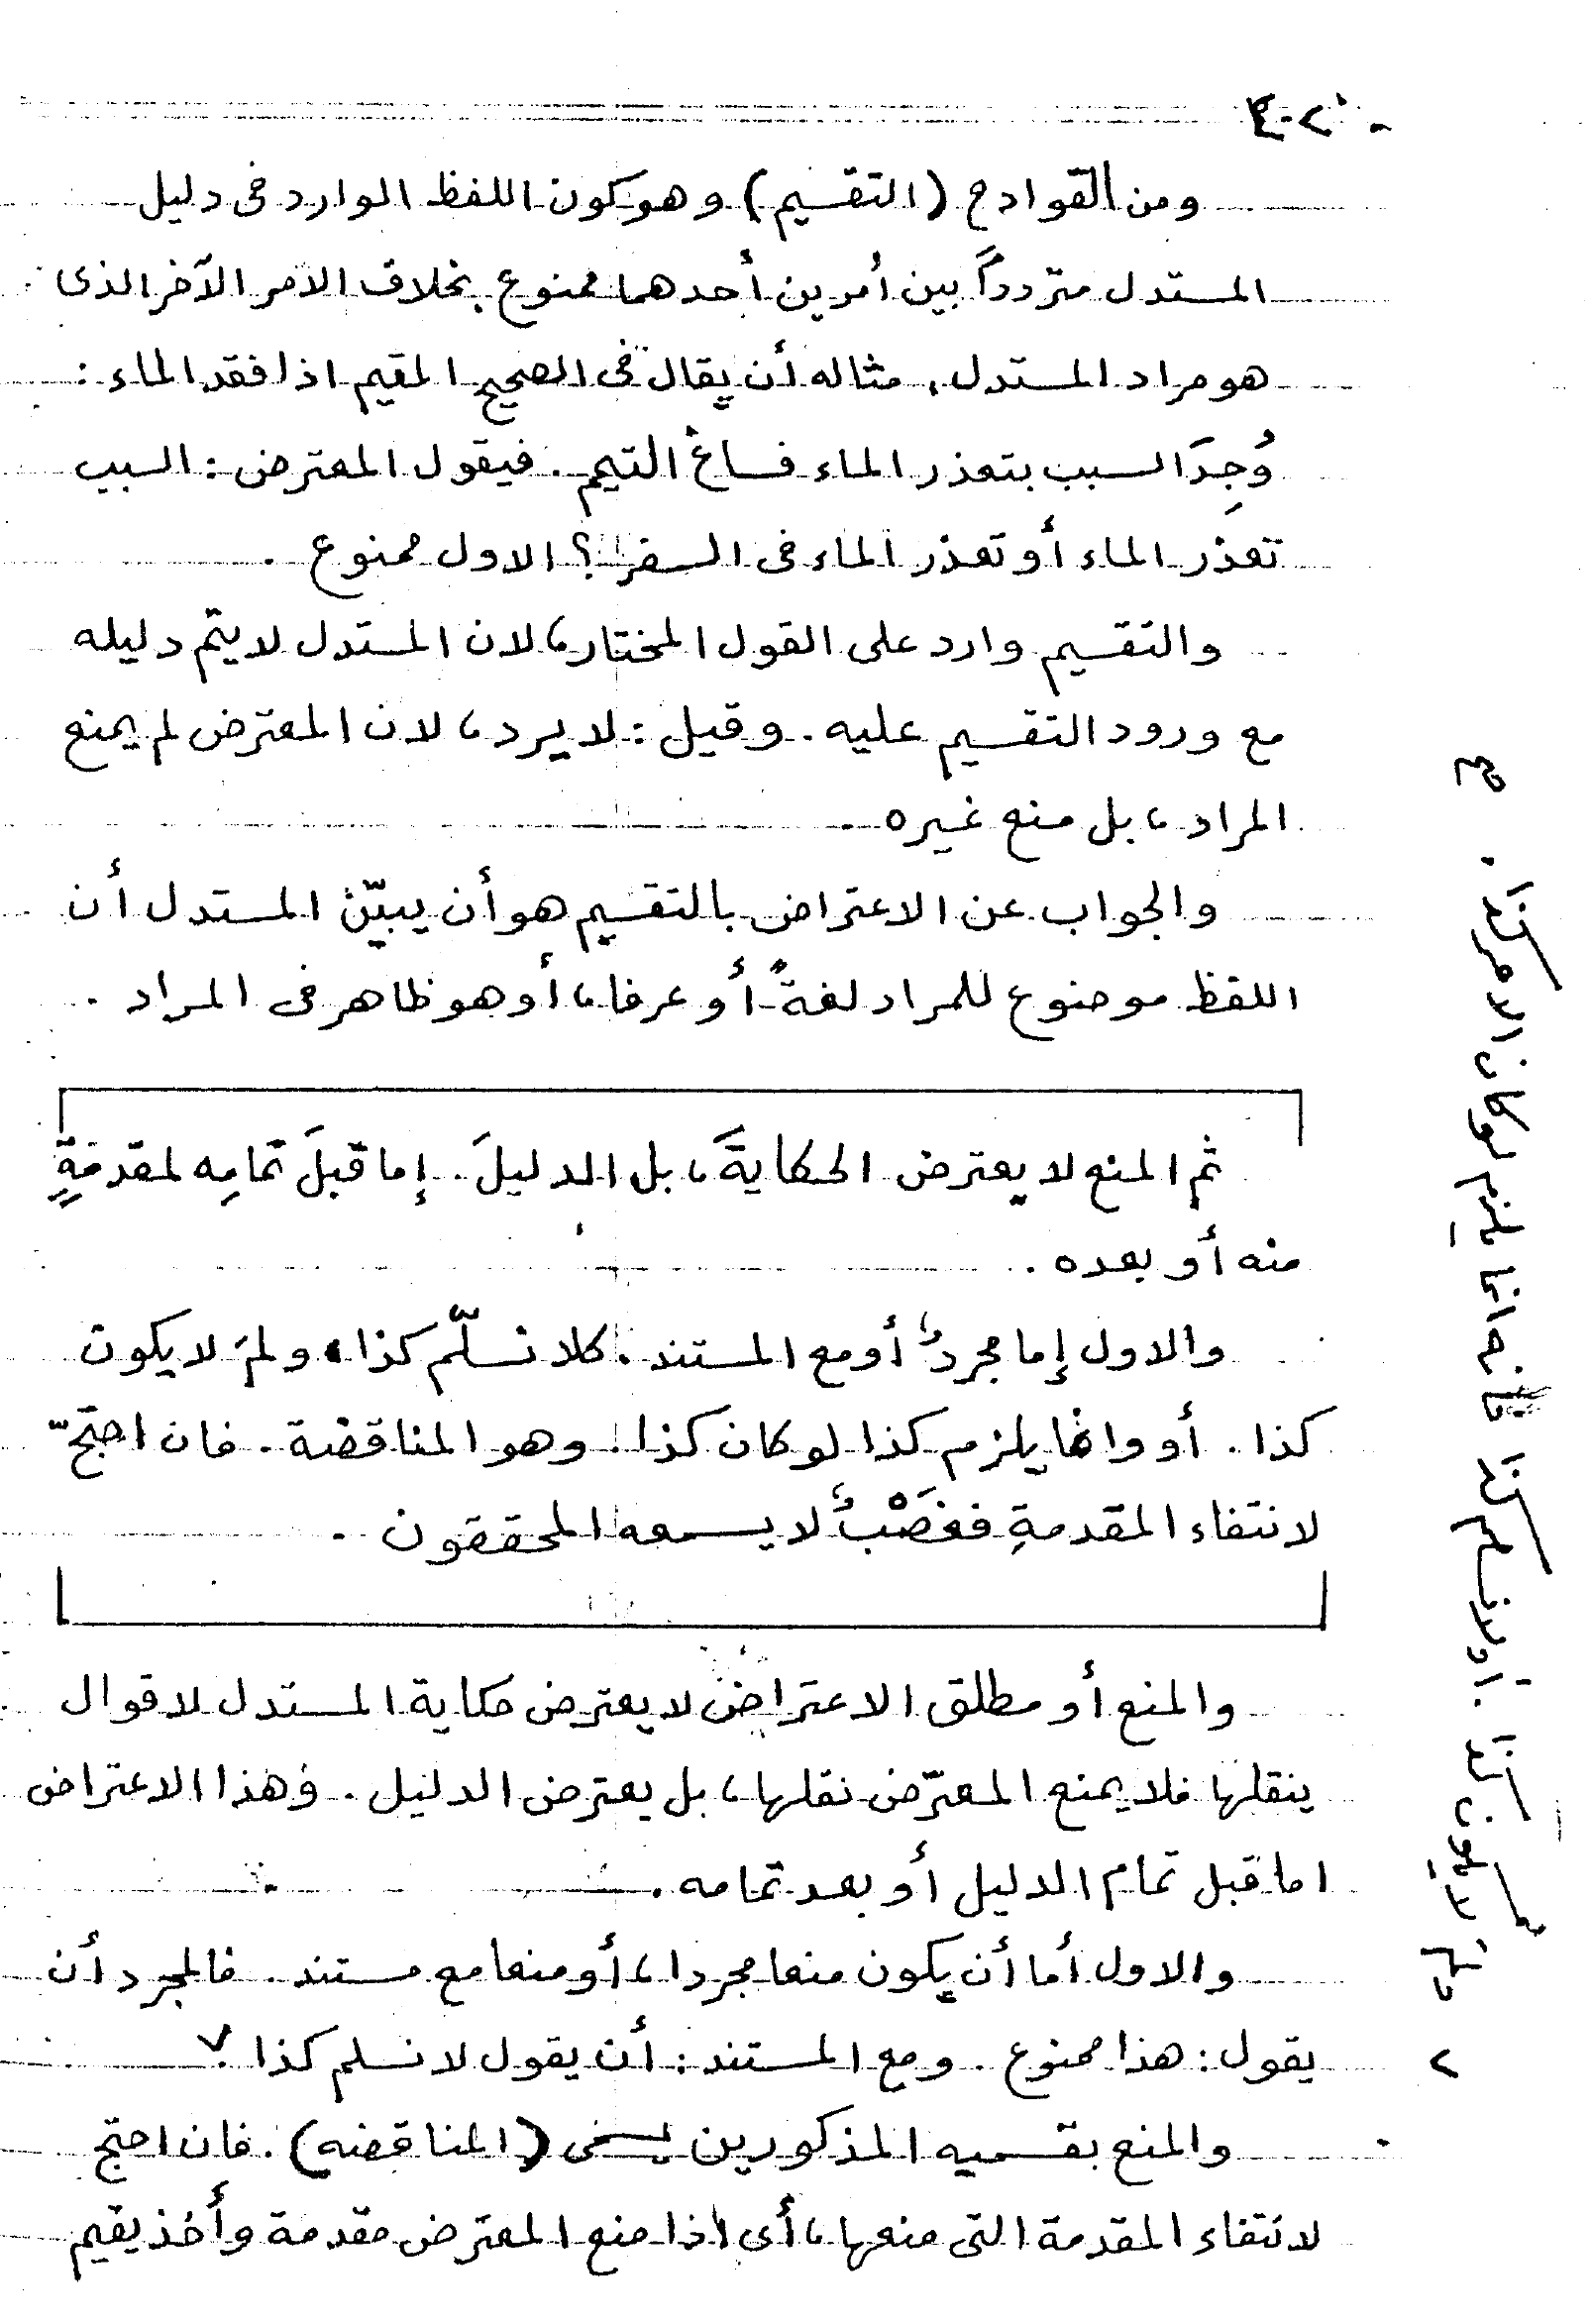 ومن القوادح (التقسيم) وهو كون اللفظ الوارد فى دليل
المستدل مترددًا بين أمرين أحدهما ممنوع بخلاف الامر الآخر الذى
هو مراد المستدل، مثاله أن يقال فى الصحيح المقيم اذا فقد الماء :
وُجِدَ السبب بتعذر الماء فساغ التيمم . فيقول المعترض : السبب
تعذر الماء أو تعذر الماء فى السفر ؟ الاول ممنوع .
والتقسيم وارد على القول المختار، لان المستدل لا يتم دليله
مع ورود التقسيم عليه . وقيل : لا يرد، لان المعترض لم يمنع
المراد، بل منع غيره .
والجواب عن الاعتراض بالتقسيم هو أن يبيّن المستدل أن
اللفظ موضوع للمراد لغةً أو عرفا، أو هو ظاهر فى المراد .
ثم المنع لا يعترض الحكايةَ، بل الدليلَ . إما قبلَ تمامِه لمقدمةٍ
منه أو بعده .
والاول إما مجردٌ أو مع المستند . كلا نسلّم كذا، ولمَ لا يكون
كذا . أو وانما يلزم كذا لو كان كذا . وهو المناقضة . فان احتجّ
لانتفاء المقدمةِ فغَصْبٌ لا يسمعه المحققون .
والمنع أو مطلق الاعتراض لا يعترض حكاية المستدل لاقوال
ينقلها فلا يمنع المعترض نقلها، بل يعترض الدليل . وهذا الاعتراض
اما قبل تمام الدليل أو بعد تمامه .
والاول أما أن يكون منعا مجردا، أو منعا مع مستند . فالمجرد أن
يقول : هذا ممنوع . ومع المستند : أن يقول لا نسلم كذا ٧
والمنع بقسميه المذكورين يسمى (المناقضه) . فان احتج
لانتفاء المقدمة التى منعها، أى اذا منع المعترض مقدمة وأخذ يقيم